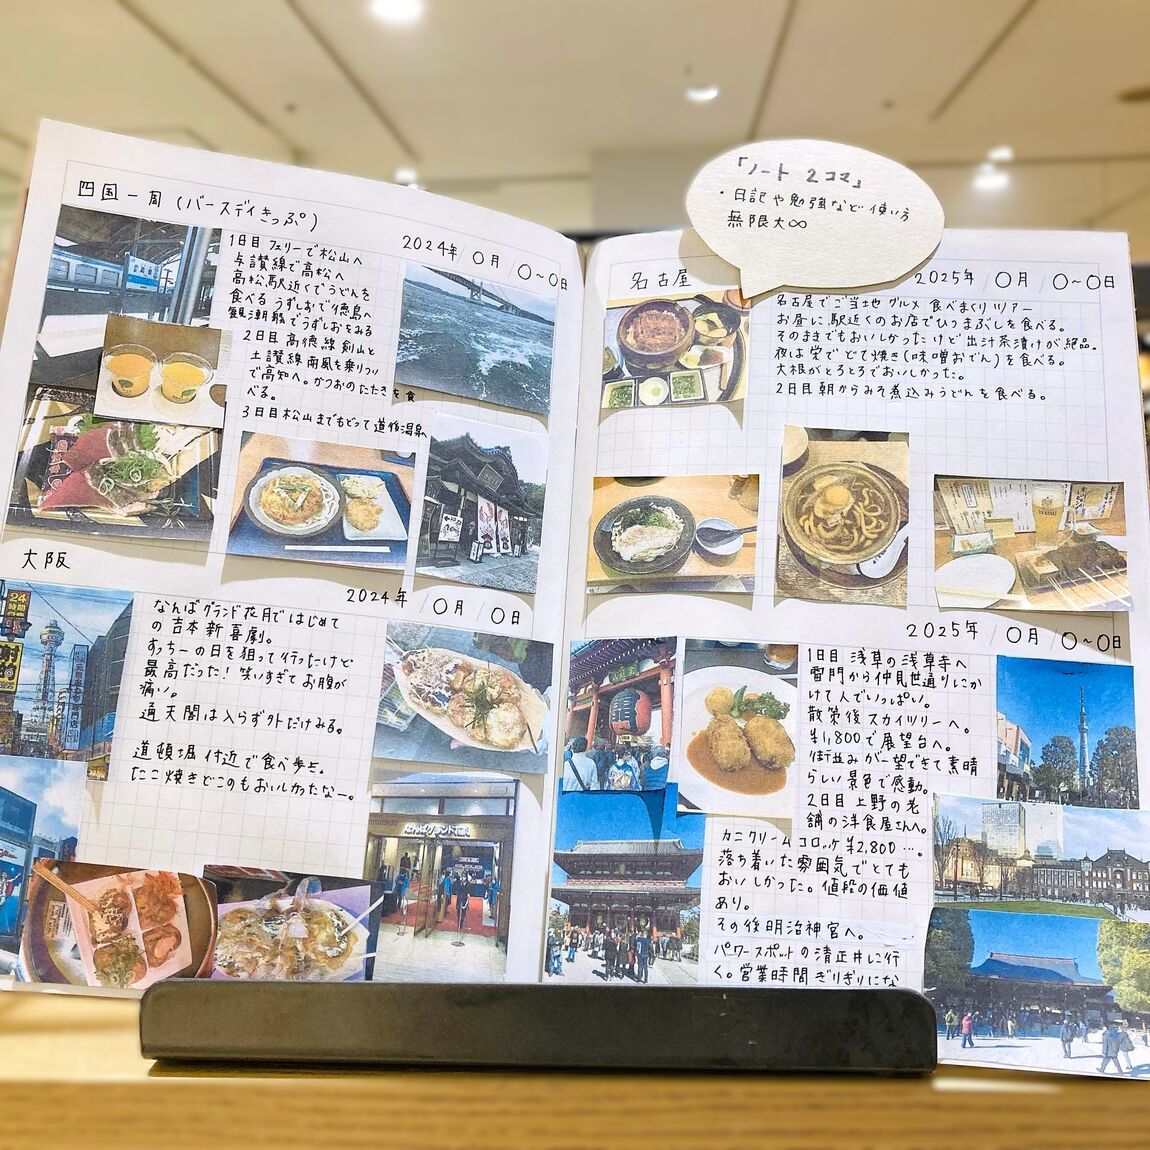 「ノート 2コマ」
・日記や勉強など使い方
無限大∞
四国一周(バースデイきっぷ)
2024年/〇月/〇~〇日
1日目 フェリーで松山へ
与讃線で高松へ
高松駅近くでうどんを
食べる うずしおで徳島へ
観潮船でうずしおをみる
2日目 高徳線剣山と
土讃線南風を乗りつい
で高知へ。かつおのたたきを食
べる。
3日目松山までもどって道後温泉へ
大阪
2024年/〇月/〇日
なんばグランド花月ではじめて
の吉本新喜劇。
すっちーの日を狙って行ったけど
最高だった! 笑いすぎてお腹が
痛い。
通天閣は入らず外だけみる。
道頓堀付近で食べ歩き。
たこ焼きどこのもおいしかったなー。
24
時間
なんばグランド花月
名古屋
2025年/〇月/〇~〇日
名古屋でご当地グルメ 食べまくりツアー
お昼に駅近くのお店でひつまぶしを食べる。
そのままでもおいしかったけど出汁茶漬けが絶品。
夜は栄でどて焼き(味噌おでん)を食べる。
大根がとろとろでおいしかった。
2日目 朝からみそ煮込みうどんを食べる。
2025年/〇月/〇~〇日
1日目 浅草の浅草寺へ
雷門から仲見世通りにか
けて人でいっぱい。
散策後スカイツリーへ。
¥1,800で展望台へ。
街並みが一望できて素晴
らしい景色で感動。
2日目 上野の老
舗の洋食屋さんへ。
カニクリームコロッケ¥2,800…。
落ち着いた雰囲気でとても
おいしかった。値段の価値
あり。
その後明治神宮へ。
パワースポットの清正井に行
く。営業時間ぎりぎりにな